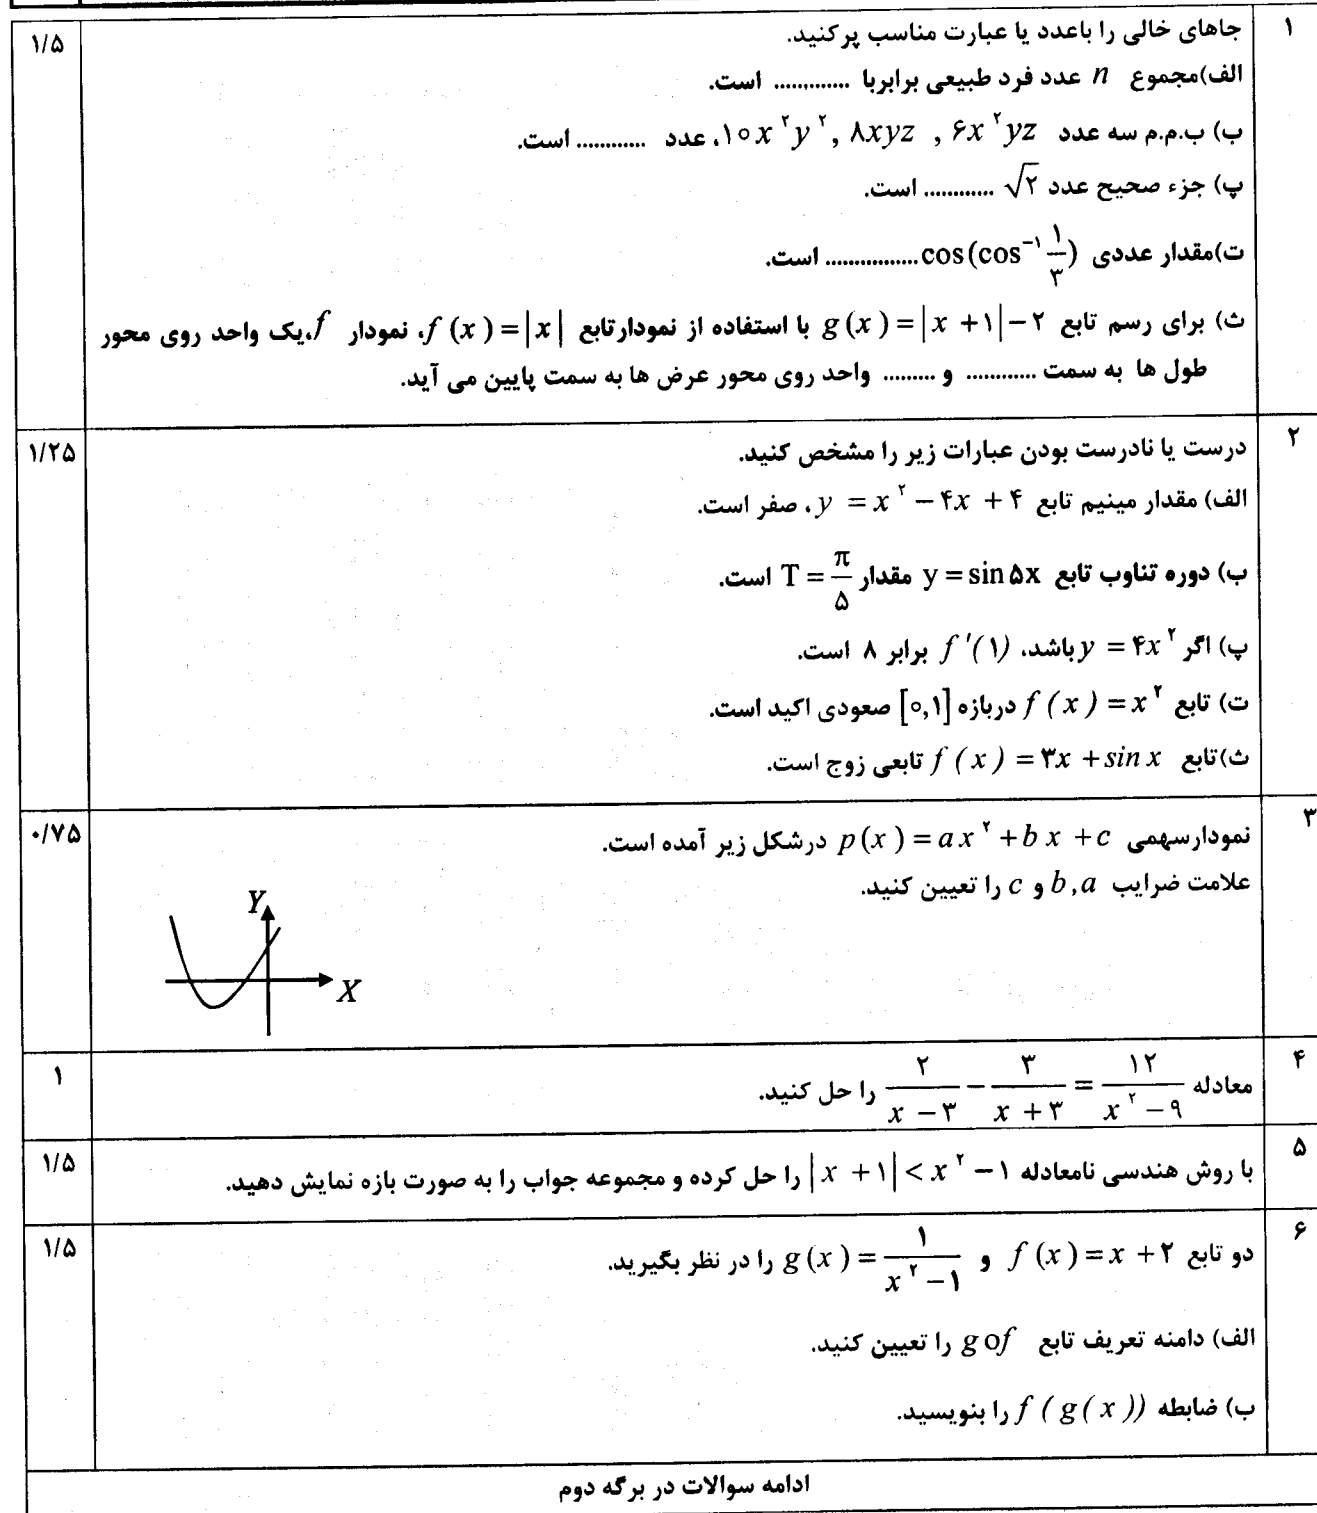 ۱
جاهای خالی را باعدد یا عبارت مناسب پرکنید.
۱/۵
الف)مجموع n عدد فرد طبیعی برابربا ............. است.
ب) ب.م.م سه عدد ۶x^۲yz , ۸xyz , ۱۰x^۲y^۲، عدد ............ است.
پ) جزء صحیح عدد √۲ ............ است.
ت)مقدار عددی cos(cos^−۱ ۱/۳)................ است.
ث) برای رسم تابع g(x)=|x+۱|−۲ با استفاده از نمودارتابع f(x)=|x|، نمودار f،یک واحد روی محور
طول ها به سمت ............ و ......... واحد روی محور عرض ها به سمت پایین می آید.
۲
درست یا نادرست بودن عبارات زیر را مشخص کنید.
۱/۲۵
الف) مقدار مینیم تابع y = x^۲ − ۴x + ۴ ، صفر است.
ب) دوره تناوب تابع y = sin ۵x مقدار T = π/۵ است.
پ) اگر y = ۴x^۲ باشد، f ′(۱) برابر ۸ است.
ت) تابع f(x) = x^۲ دربازه [۰,۱] صعودی اکید است.
ث)تابع f(x) = ۳x + sin x تابعی زوج است.
۳
نمودارسهمی p(x) = ax^۲ + bx + c درشکل زیر آمده است.
۰/۷۵
علامت ضرایب b,a و c را تعیین کنید.
Y
X
۴
معادله ۲/(x−۳) − ۳/(x+۳) = ۱۲/(x^۲−۹) را حل کنید.
۱
۵
با روش هندسی نامعادله |x+۱| < x^۲−۱ را حل کرده و مجموعه جواب را به صورت بازه نمایش دهید.
۱/۵
۶
دو تابع f(x) = x+۲ و g(x) = ۱/(x^۲−۱) را در نظر بگیرید.
۱/۵
الف) دامنه تعریف تابع gof را تعیین کنید.
ب) ضابطه f(g(x)) را بنویسید.
ادامه سوالات در برگه دوم